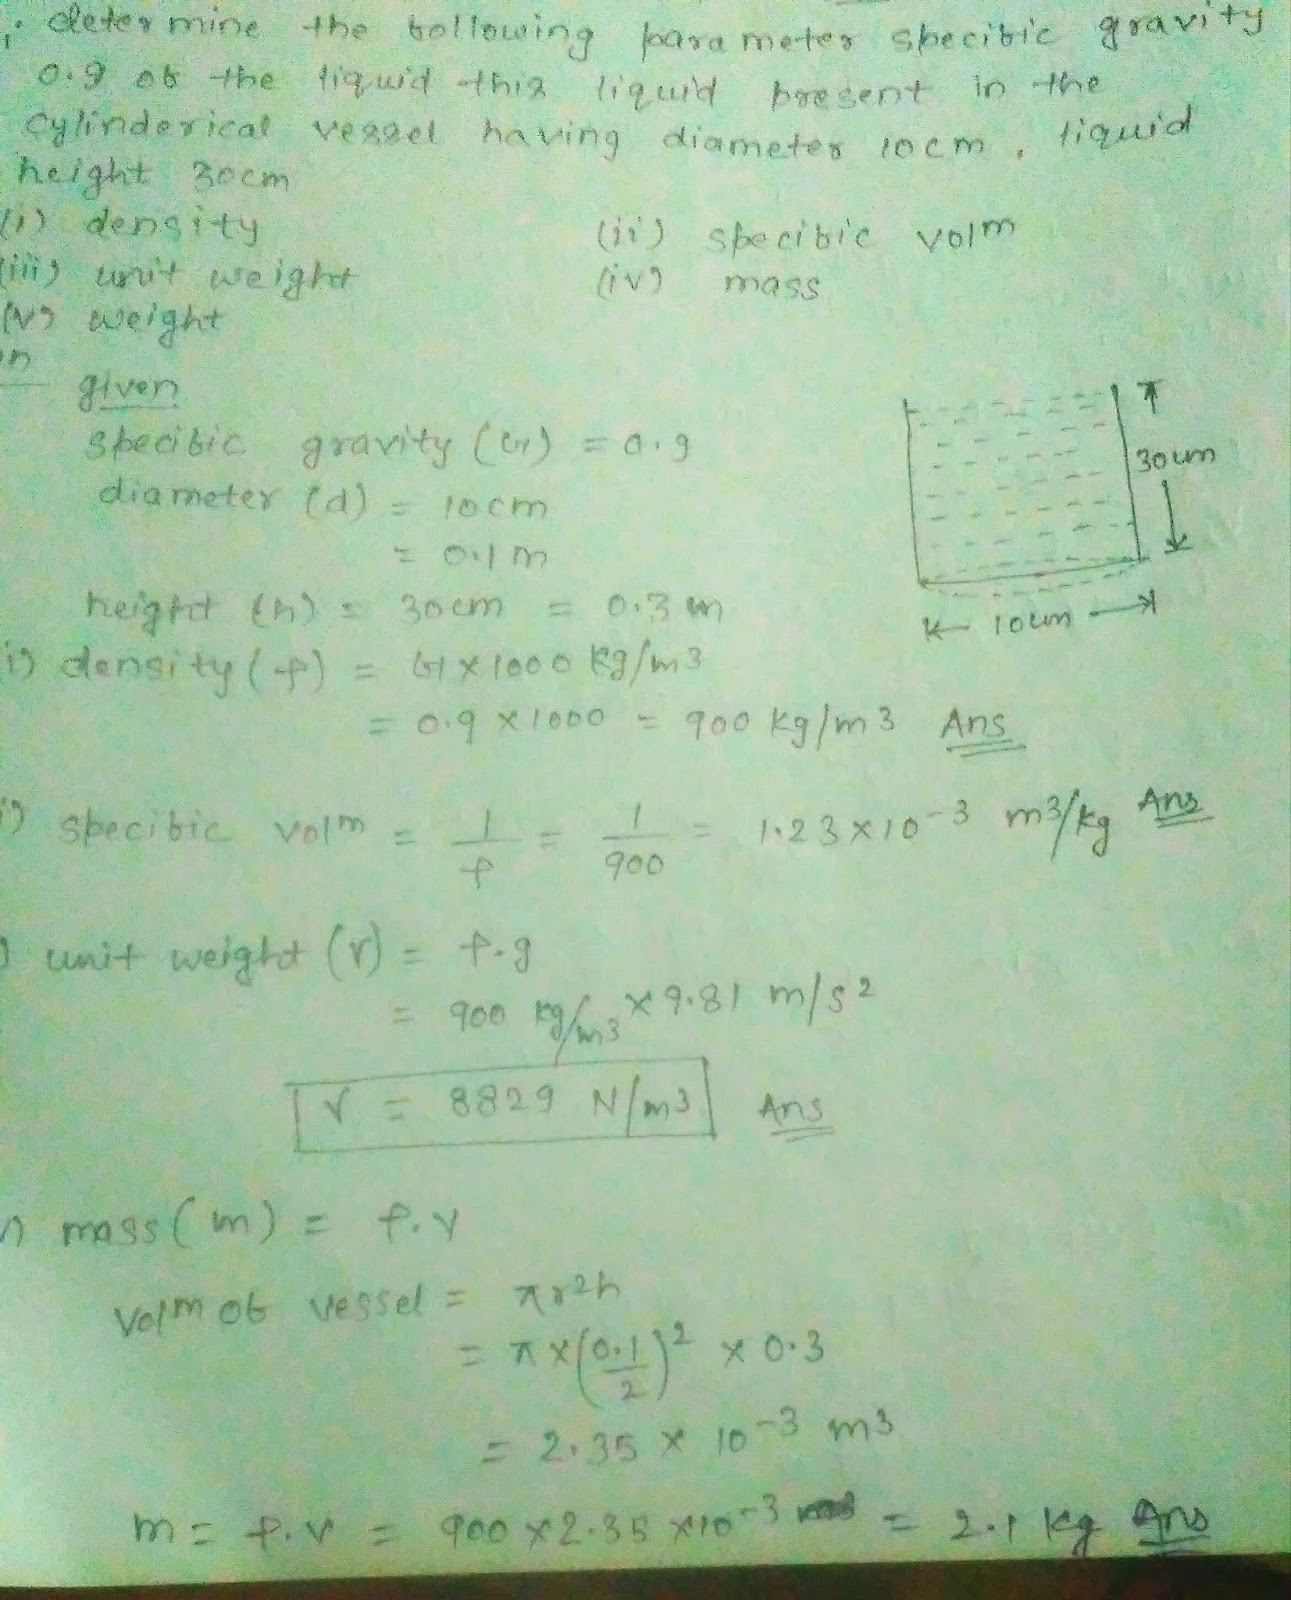 determine the following parameter specific gravity
0.9 of the liquid this liquid present in the
cylinderical vessel having diameter 10cm, liquid
height 30cm
(i) density (ii) specific volm
(iii) unit weight (iv) mass
(v) weight
n
given
specific gravity (G) = 0.9
diameter (d) = 10cm
= 0.1 m
height (h) = 30cm = 0.3 m
30cm
10cm
i) density (ρ) = G × 1000 kg/m3
= 0.9 × 1000 = 900 kg/m3 Ans
i) specific volm = 1/ρ = 1/900 = 1.23 × 10-3 m3/kg Ans
) unit weight (γ) = ρ.g
= 900 kg/m3 × 9.81 m/s2
γ = 8829 N/m3 Ans
) mass (m) = ρ.v
volm of vessel = πr2h
= π × (0.1/2)2 × 0.3
= 2.35 × 10-3 m3
m = ρ.v = 900 × 2.35 × 10-3 = 2.1 kg Ans